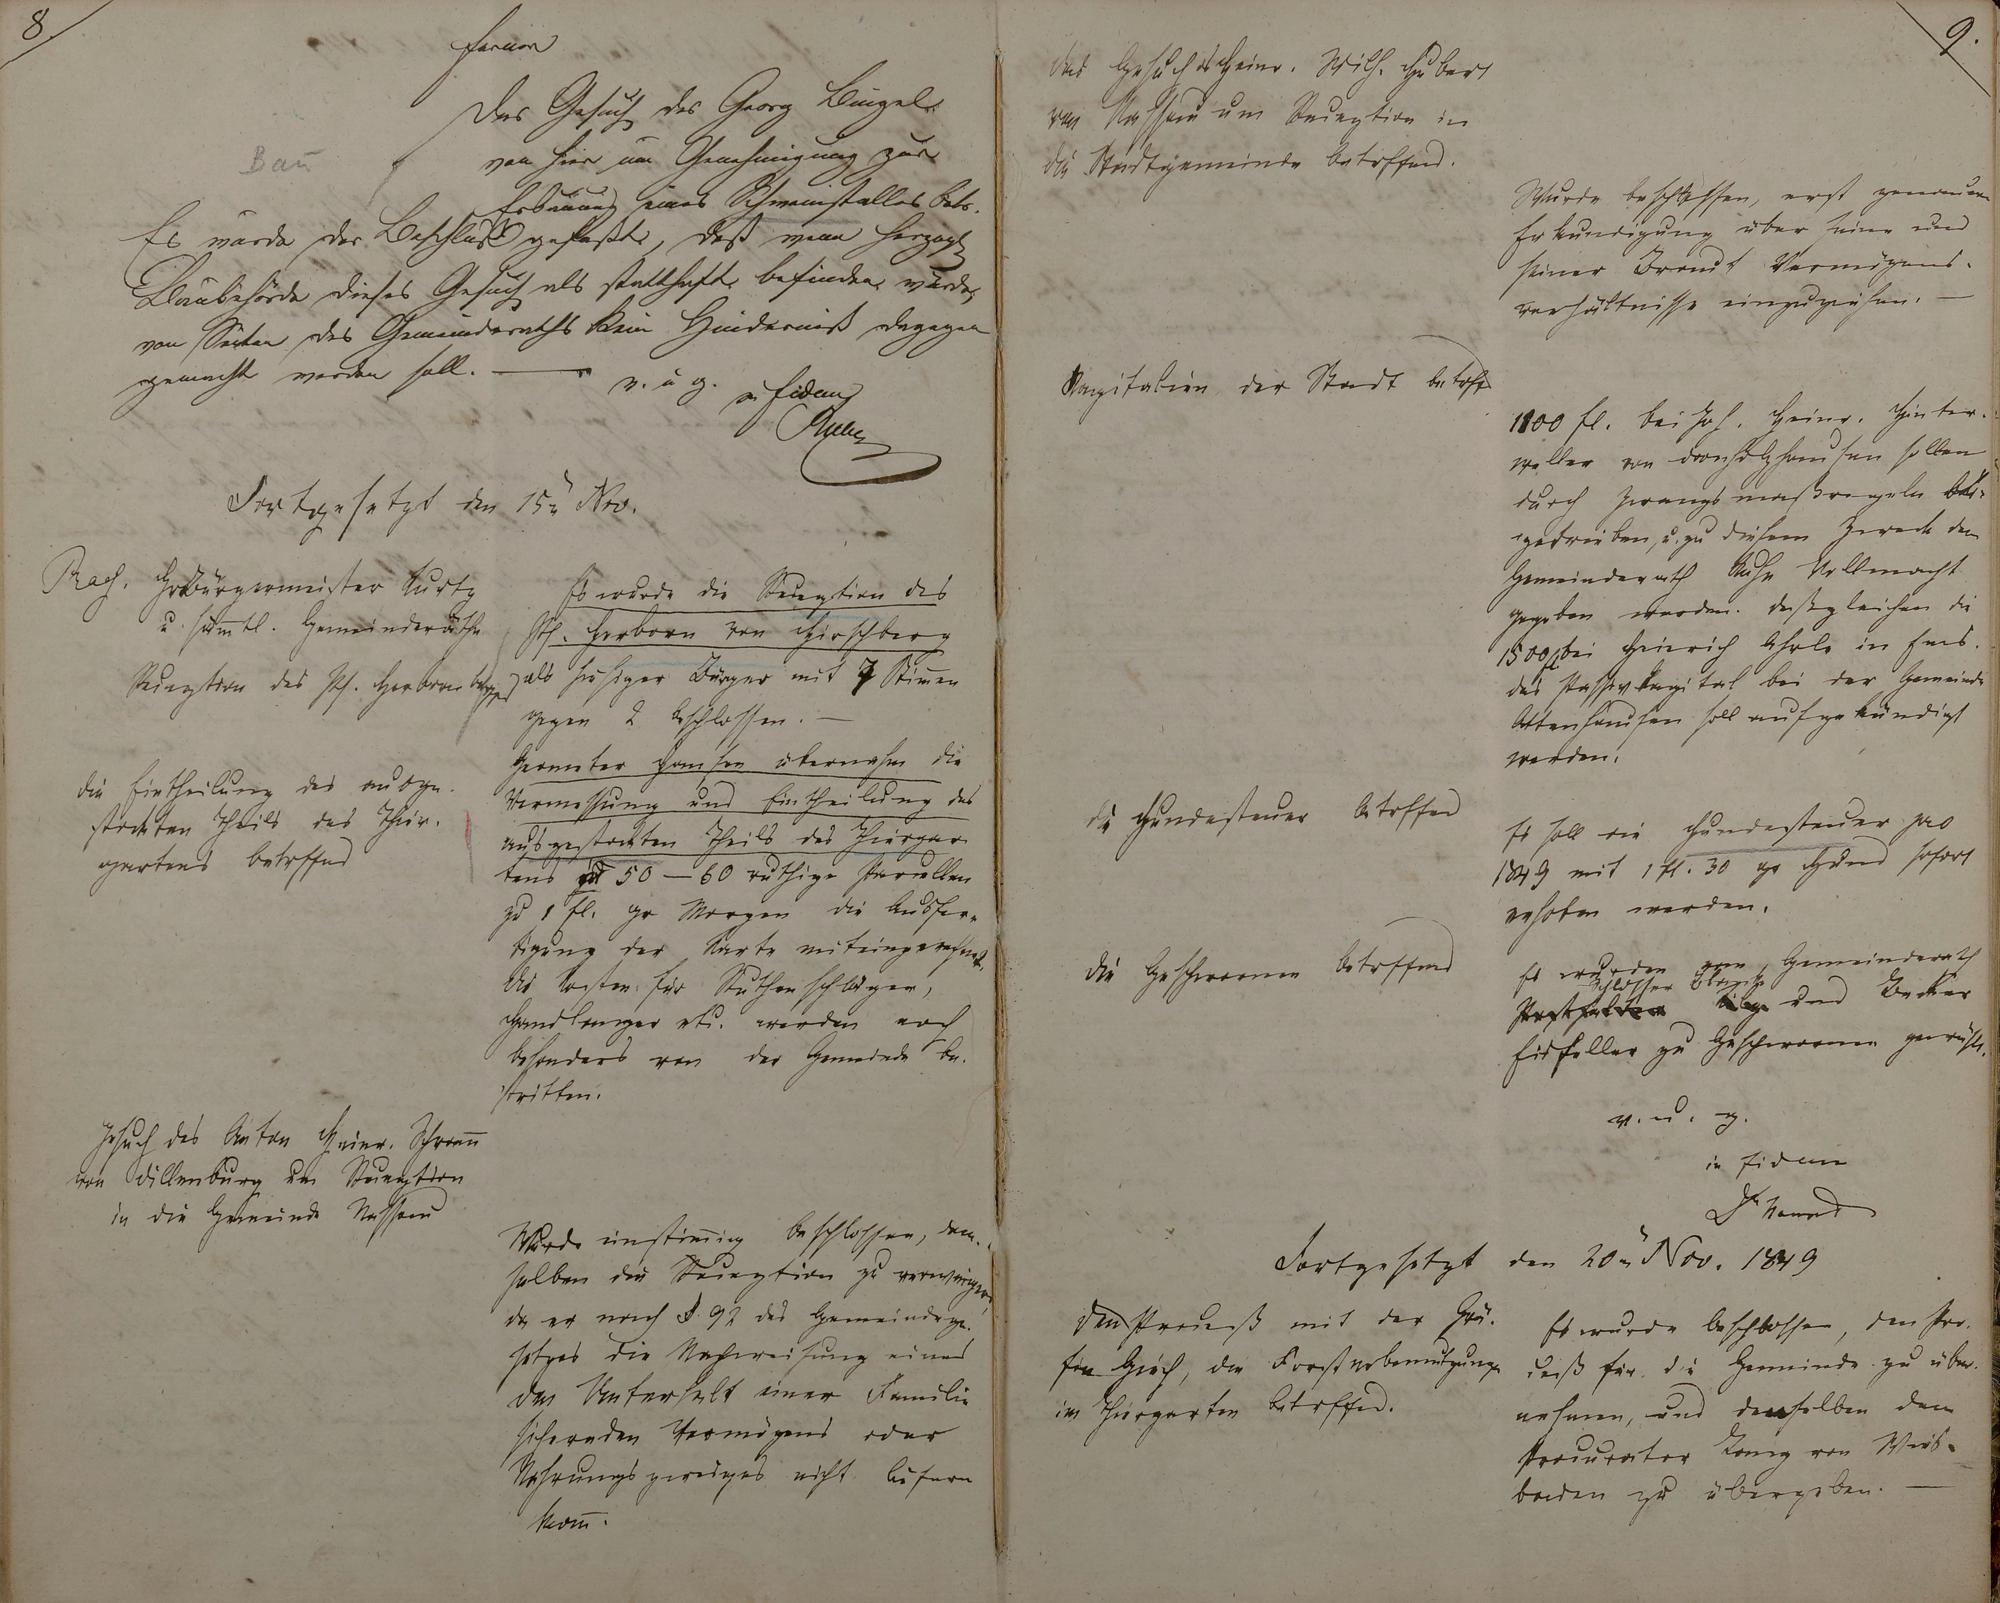 8.
ferner
Das Gesuch des Georg Bingel
von hier um Genehmigung zur
Bau
Erbauung eines Schweinstalles betr.
Es wurde der Beschluß gefaßt, daß wenn Herzogl.
Baubehörde dieses Gesuch als statthaft befinden würde,
von Seiten des Gemeinderaths kein Hinderniß dagegen
gemacht werden soll. —
v. u. g.
in fidem
Fortgesetzt den 15n Nov.
Hr Bürgermeister Kurtz
u. sämtl. Gemeinderäthe
Reception des Ph. Herborn betr.
Es wurde die Reception des
Ph. Herborn von Hirschberg
als hiesiger Bürger mit 7 Stimen
gegen 2 beschlossen. —
die Eintheilung des ausge-
stockten Theils des Thier-
gartens betreffend
Geometer übernahm die
Vermessung und Eintheilung des
ausgestockten Theils des Thiergar
tens in 50 — 60 ruthige Parcellen
zu 1 fl. pr Morgen die Ausfer-
tigung der Karte miteingerechnet.
die Kosten für Ruthenschläger,
Handlanger etc. werden noch
besonders von der Gemeinde be-
stritten.
Gesuch des Anton Heinr. Schramm
von Dillenburg um Reception
in die Gemeinde Nassau
Wurde einstimig beschlossen, dem-
selben die Reception zu verweigern,
da er nach §. 92 des Gemeindege-
setzes die Nachweisung eines
den Unterhalt einer Familie
sichernden Vermögens oder
Nahrungszweiges nicht liefern
kann.
9.
das Gesuch des Heinr. Wilh. Hubert
von Nassau um Reception in
die Stadtgemeinde betreffend.
Wurde beschlossen, erst genauere
Erkundigung über seine und
seiner Braut Vermögens-
verhältnisse einzuziehen. —
Kapitalien der Stadt betreff
1100 fl. bei Joh. Heinr. Hinter-
weller von Dornholzhausen sollen
durch Zwangsmaßregeln bei-
getrieben, u. zu diesem Zweck dem
Gemeinderath Kuhn Vollmacht
gegeben werden. Deßgleichen die
1500 fl bei Heinrich in Ems.
das Passivkapital bei der Gemeinde
Attenhausen soll aufgekündigt
werden.
die Hundesteuer betreffend
Es soll die Hundesteuer pro
1849 mit 1 fl. 30 pr Hund sofort
erhoben werden.
die Geschwornen betreffend
Es wurden vom Gemeinderath
Schlosser
und Becker
zu Geschwornen gewählt.
v. u. g.
in fidem
Fortgesetzt den 20n Nov. 1849
den Proceß mit der Grä-
fin Giech, die Forstnebennutzungen
im Thiergarten betreffend.
Es wurde beschlossen, den Pro-
ceß für die Gemeinde zu über-
nehmen, und denselben dem
Procurator Lang von Wies-
baden zu übergeben. —